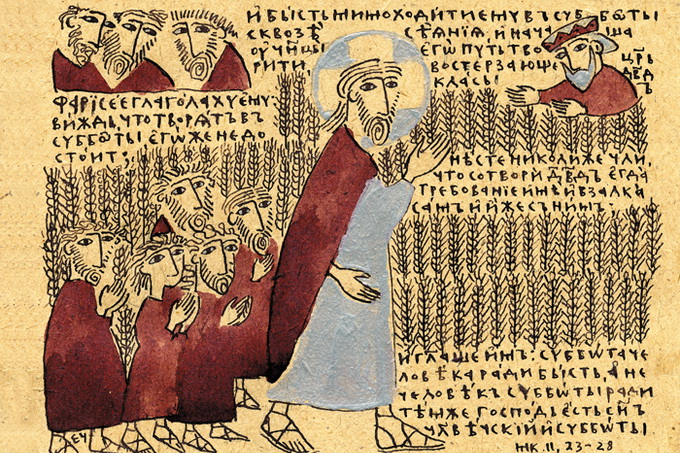 И БЫСТЬ МИМОХОДИТИ ЕМУ В СУББѠТЫ
СКВОЗѢ СѢѦНІѦ, И НАЧАША
ОУЧНЦЫ ЕГѠ ПУТЬ ТВО
РИТИ, ВОСТЕРЗАЮЩЕ
КЛАСЫ
ЦРЬ
ДВДЪ
ФАРІСЕЕ ГЛАГОЛАХУ ЕМУ:
ВИЖДЬ, ЧТО ТВОРѦТЪ В
СУББѠТЫ ЕГѠЖЕ НЕ ДО
СТОИТ;
НѢСТЕ НИКОЛИЖЕ ЧЛИ,
ЧТО СОТВОРИ ДВДЪ ЕГДА
ТРЕБОВАНІЕ ИМѢ И ВЗАЛКА
САМЪ И ИЖЕ С НИМЪ:
И ГЛАШЕ ИМЪ: СУББѠТА ЧЕ
ЛОВѢКА РАДИ БЫСТЬ, А НЕ
ЧЕЛОВѢКЪ СУББѠТЫ РАДИ
ТѢМЖЕ ГОСПОДЬ ЕСТЬ СНЪ
ЧЛВѢЧСКІЙ И СУББѠТЫ
МК. II, 23-28
ЕЧ